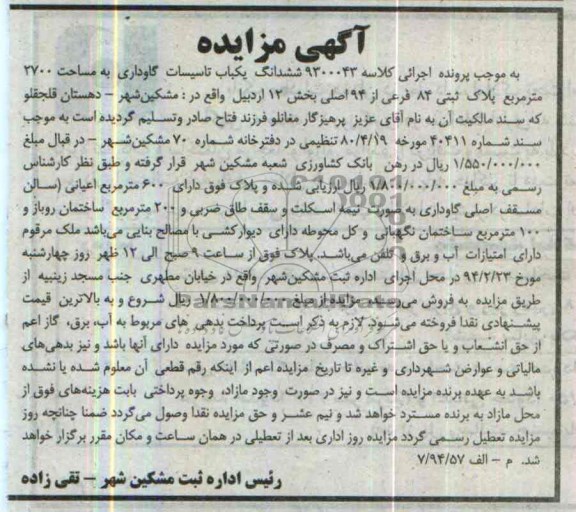 آگهی مزایده
به موجب پرونده اجرائی کلاسه ۹۳۰۰۰۴۳ ششدانگ یکباب تاسیسات گاوداری به مساحت ۲۷۰۰
مترمربع پلاک ثبتی ۸۴ فرعی از ۹۴ اصلی بخش ۱۲ اردبیل واقع در : مشکین‌شهر – دهستان قلجقلو
که سند مالکیت آن به نام آقای عزیز پرهیزگار مغانلو فرزند فتاح صادر وتسلیم گردیده است به موجب
سند شماره ۴۰۴۱۱ مورخه ۸۰/۴/۱۹ تنظیمی در دفترخانه شماره ۷۰ مشکین‌شهر – در قبال مبلغ
۱/۵۵۰/۰۰۰/۰۰۰ ریال در رهن بانک کشاورزی شعبه مشکین شهر قرار گرفته و طبق نظر کارشناس
رسمی به مبلغ ۱/۸۰۰/۰۰۰/۰۰۰ ریال ارزیابی شده و پلاک فوق دارای ۶۰۰ مترمربع اعیانی (سالن
مسقف اصلی گاوداری به صورت نیمه اسکلت و سقف طاق ضربی و ۲۰۰ مترمربع ساختمان روباز و
۱۰۰ مترمربع ساختمان نگهبانی و کل محوطه دارای دیوارکشی با مصالح بنایی می‌باشد ملک مرقوم
دارای امتیازات آب و برق و تلفن می‌باشد. پلاک فوق از ساعت ۹ صبح الی ۱۲ ظهر روز چهارشنبه
مورخ ۹۴/۲/۲۳ در محل اجرای اداره ثبت مشکین‌شهر واقع در خیابان مطهری جنب مسجد زینبیه از
طریق مزایده به فروش می‌رسد. مزایده از مبلغ ۱/۸۰۰/۰۰۰/۰۰۰ ریال شروع و به بالاترین قیمت
پیشنهادی نقدا فروخته می‌شود لازم به ذکر است پرداخت بدهی های مربوط به آب، برق، گاز اعم
از حق انشعاب و یا حق اشتراک و مصرف در صورتی که مورد مزایده دارای آنها باشد و نیز بدهی‌های
مالیاتی و عوارض شهرداری و غیره تا تاریخ مزایده اعم از اینکه رقم قطعی آن معلوم شده یا نشده
باشد به عهده برنده مزایده است و نیز در صورت وجود مازاد، وجوه پرداختی بابت هزینه‌های فوق از
محل مازاد به برنده مسترد خواهد شد و نیم عشر و حق مزایده نقدا وصول می‌گردد ضمنا چنانچه روز
مزایده تعطیل رسمی گردد مزایده روز اداری بعد از تعطیلی در همان ساعت و مکان مقرر برگزار خواهد
شد. م – الف ۷/۹۴/۵۷
رئیس اداره ثبت مشکین شهر – تقی زاده